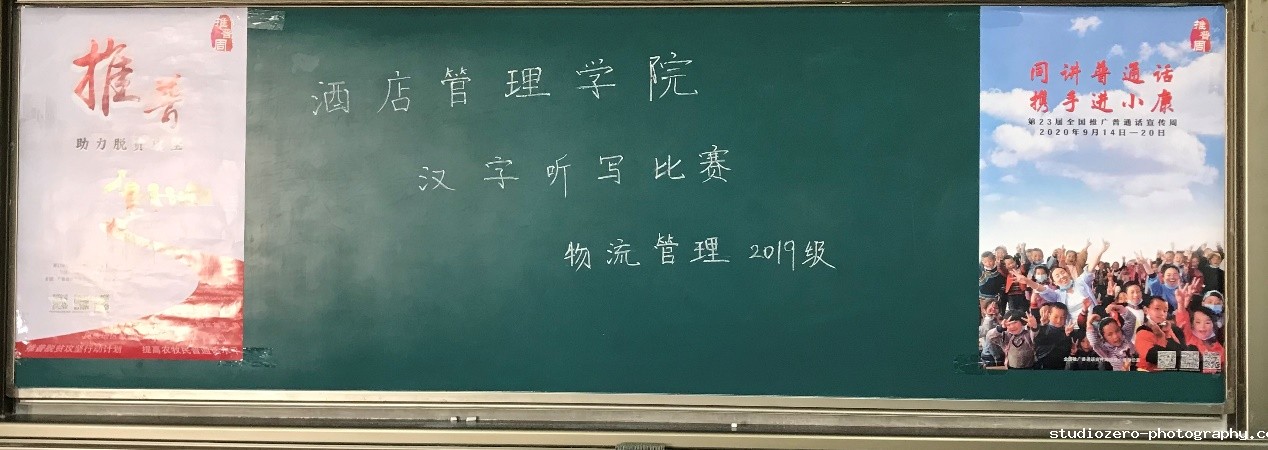 推普
助力脱贫攻坚
推普脱贫攻坚行动计划
推普周
酒店管理学院
汉字听写比赛
物流管理 2019级
推普周
同讲普通话
携手进小康
第23届全国推广普通话宣传周
2020年9月14日—20日
studiozero-photography.co